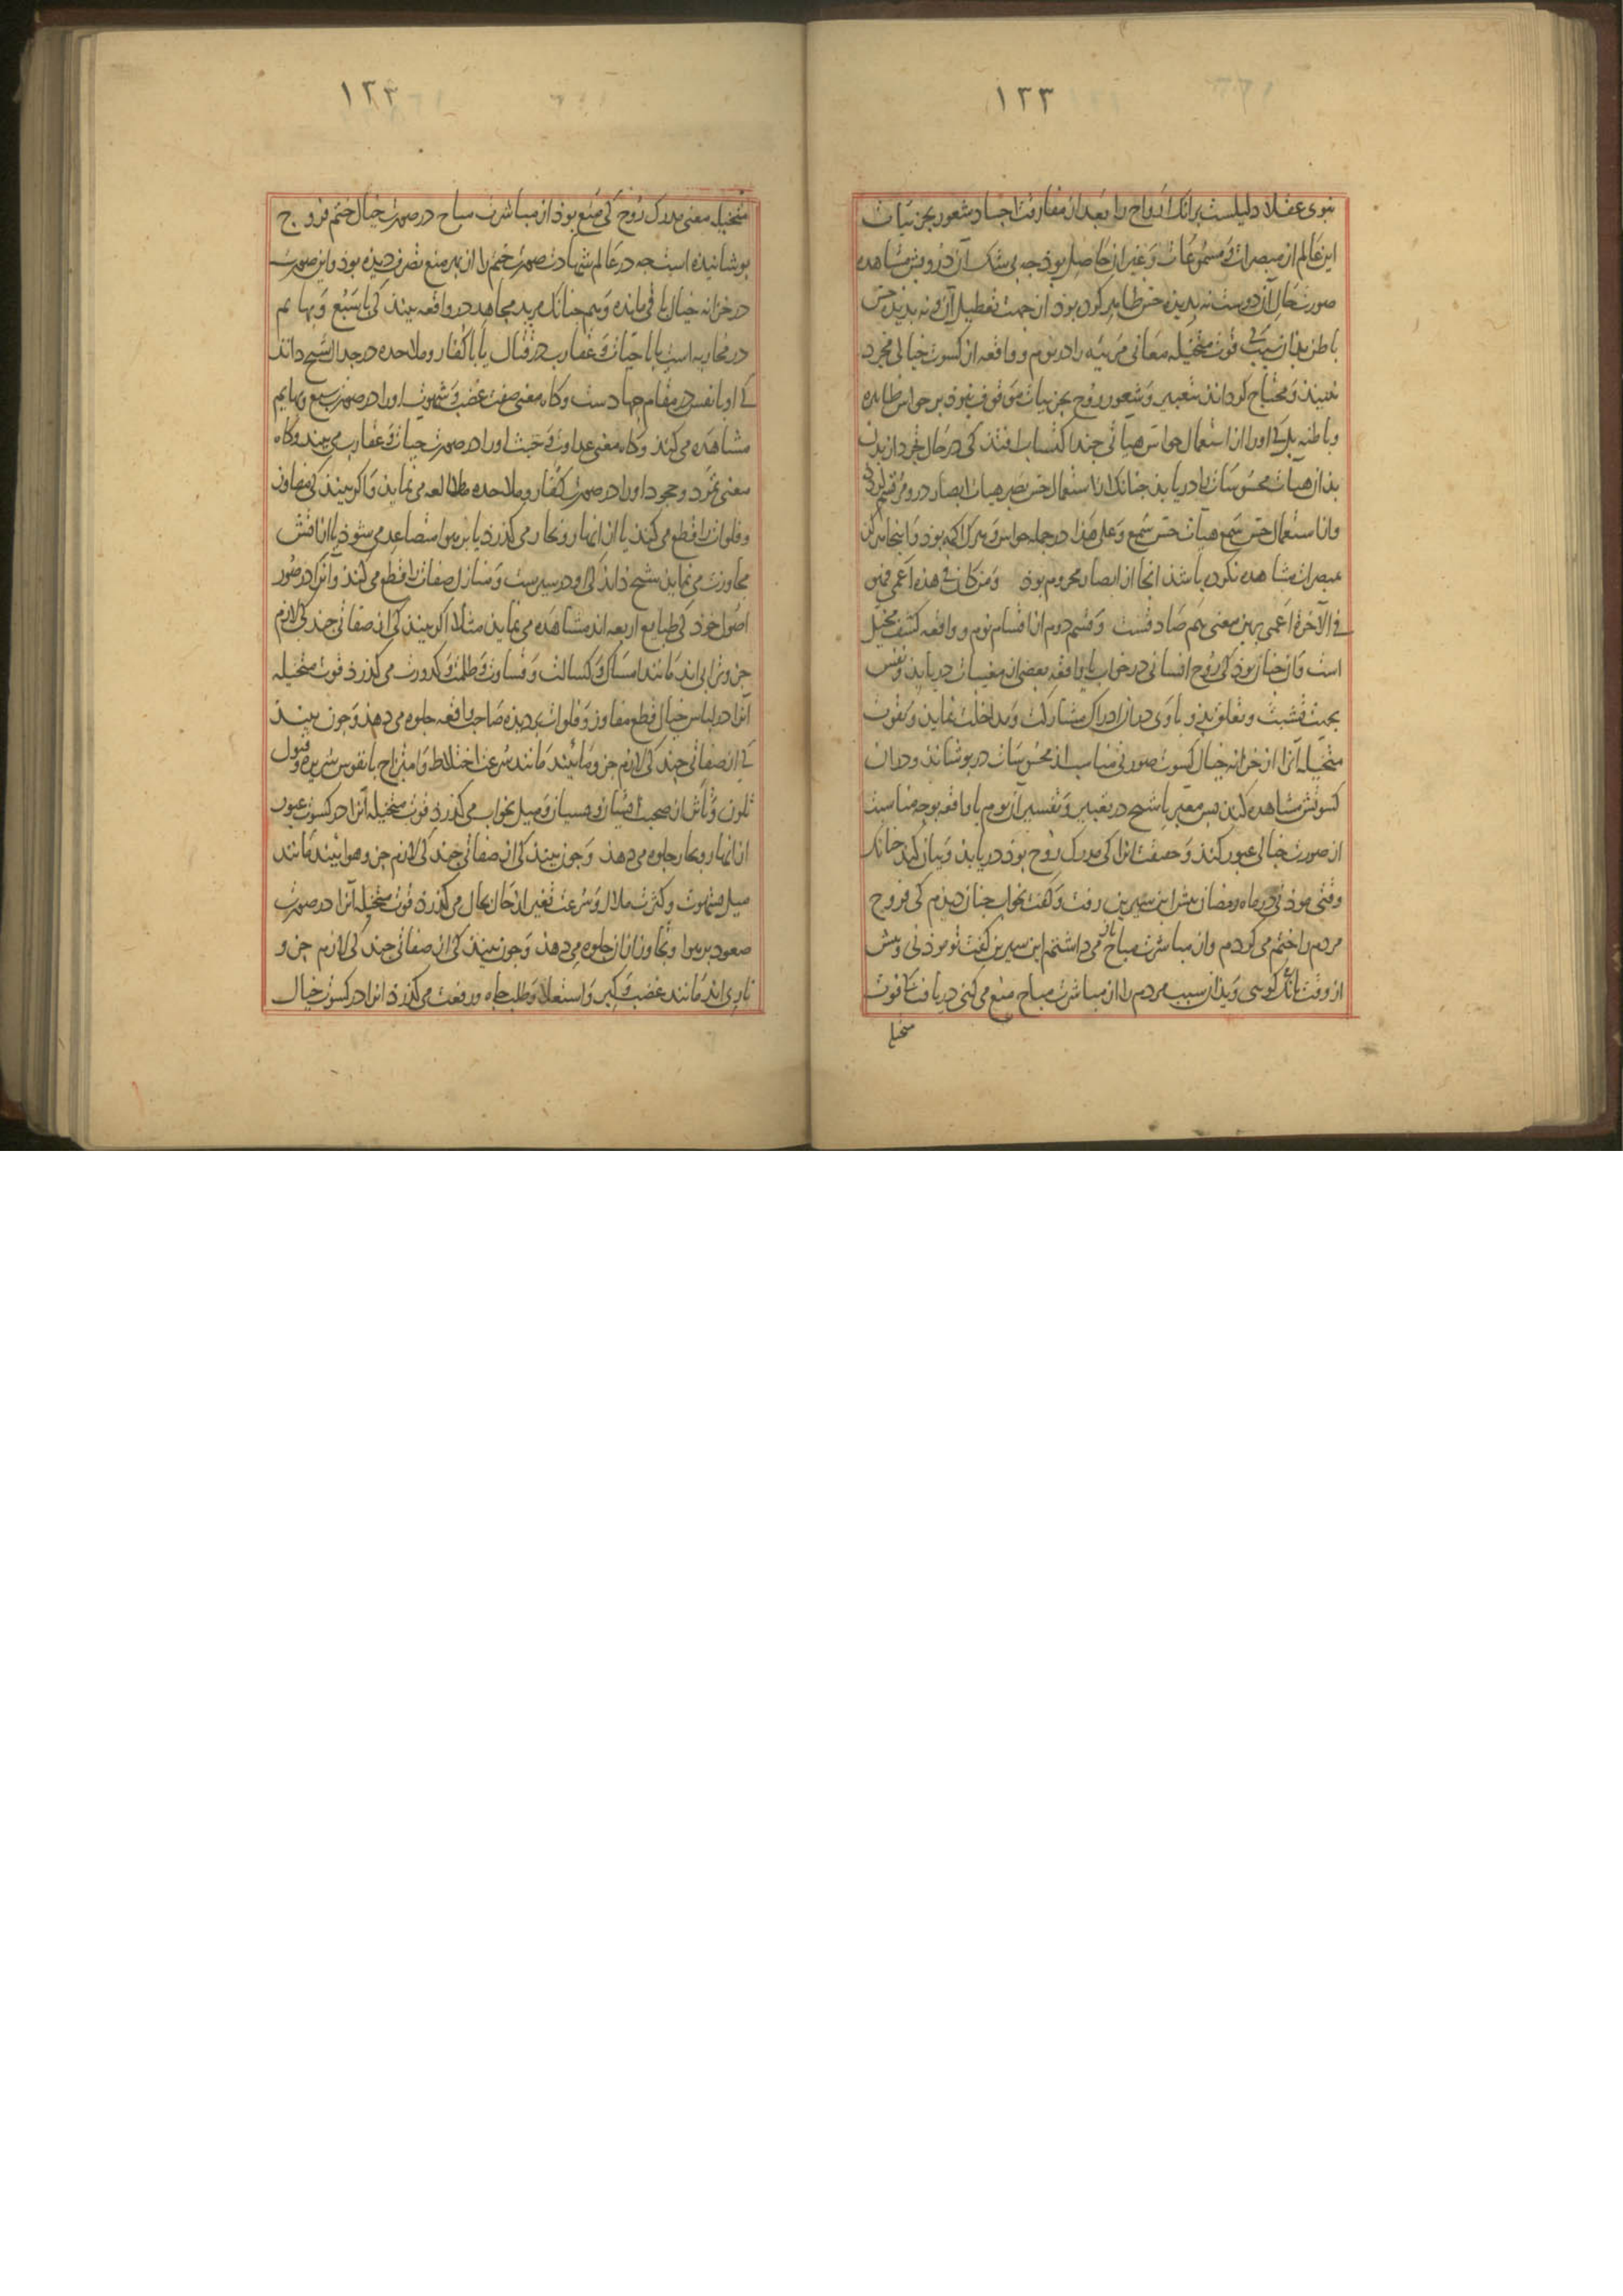 ١٢٣
نبوی عقلا دلیلست برانک ارواح را بعد از مفارقت اجساد شعور بجزئیات
این عالم از مبصرات و مسموعات و غیر ان حاصل بود چه بی شک آن درویش مشاهده
صورت حال آن دوست نه بدیده حس ظاهر کرده بود از جهت تعطیل آن و نه بدیده حس
باطن بدان سبب کی قوت متخیله معانی مرئیه را در نوم و واقعه از کسوت خیالی مجرد
نبیند و محتاج کرداند بتعبیر و شعور روح بجزئیات موقوف نبود بر حواس ظاهره
و باطنه بل کی او را از استعمال حواس هیأتی چند اکتساب افتد کی در حال تجرد از بدن
بدان هیآت محسوسات را دریابد چنانک از استعمال حس بصر هیات ابصار درو مرتسم کردد
و از استعمال حس سمع هیآت حس سمع و علی هذا در جمله حواس و هرک اکمه بود و اینجا هرکز
مبصرات مشاهده نکرده باشد انجا از ابصار محروم بود و من کان فی هذه اعمی فهو
فی الآخرة اعمی بهین معنی هم صادقست و قسم دوم از اقسام نوم و واقعه کشف مخیل
است و آن چنان بود کی روح انسانی در خواب یا واقعه بعضی از مغیبات دریابد و نفس
بجهت تشبث و تعلق بذو با وی در ان ادراک مشارکت و مداخلت نماید و بقوت
متخیله آنرا از خزانه خیال کسوت صورتی مناسب از محسوسات در پوشاند و در ان
کسوتش مشاهده کند پس معبر یا شیخ در تعبیر و تفسیر آن نوم یا واقعه بوجه مناسبت
از صورت خیالی عبور کند و حقیقت انرا کی مدرک روح بود دریابد و بیان کند چنانک
وقتی موذنی در ماه رمضان پیش ابن سیرین رفت و کفت بخواب چنان دیدم کی فروج
مردم را ختم می کردم و از مباشرت مباح باز می داشتم ابن سیرین کفت تو موذنی و پیش
از وقت بانک کویی و بدان سبب مردم را از مباشرت مباح منع می کنی دریافت کی قوت
متخیله
١٢٣
متخیله معنی مدرک روح کی منع بود از مباشرت مباح در صورت خیال ختم فروج
پوشانیده است چه در عالم شهادت صورت ختم را از بهر منع تصرف دیده بود و این صورت
در خزانه خیال باقی مانده و هم چنانک مرید مجاهد در واقعه بیند کی با سبع و بهایم
در محاربه است یا با حیات و عقارب در قتال یا با کفار و ملاحده در جدال شیخ داند
کی او با نفس در مقام جهادست و کاه معنی صفت غضب و شهوت او را در صورت سبع و بهایم
مشاهده می کند و کاه معنی عداوت و خبث او را در صورت حیات و عقارب می بیند و کاه
معنی تمرد و جحود او را در صورت کفار و ملاحده مطالعه می نماید و اکر بیند کی مفاوز
و فلوات را قطع می کند یا از انهار و بحار می کذرد یا بر هوا متصاعد می شود یا از اتش
مجاوزت می نماید شیخ داند کی او در سیرست و منازل صفات را قطع می کند و آنرا در صور
اصول خود کی طبایع اربعه اند مشاهده می نماید مثلا اکر بیند کی از صفاتی چند کی لازم
جزو ترابی اند مانند امساک و کسالت و قساوت و ظلمت و کدورت می کذرد قوت متخیله
آنرا در لباس خیال قطع مفاوز و فلوات بر دیده صاحب واقعه جلوه می دهد و چون بیند
کی از صفاتی چند کی لازم جزو مائیند مانند سرعت اختلاط و امتزاج با نفوس شریره و قبول
تلون و تأثر از صحبت ایشان و نسیان و میل بخواب می کذرد قوت متخیله آنرا در کسوت عبور
از انهار و بحار جلوه می دهد و چون بیند کی از صفاتی چند کی لازم جزو هوایند مانند
میل بشهوت و کثرت ملال و سرعت تغیر از حال بحال می کذرد قوت متخیله آنرا در صورت
صعود بر هوا و تجاوز از ان جلوه می دهد و چون بیند کی از صفاتی چند کی لازم جزو
ناری اند مانند غضب و کبر و استعلا و طلب جاه و رفعت می کذرد انرا در کسوت خیال